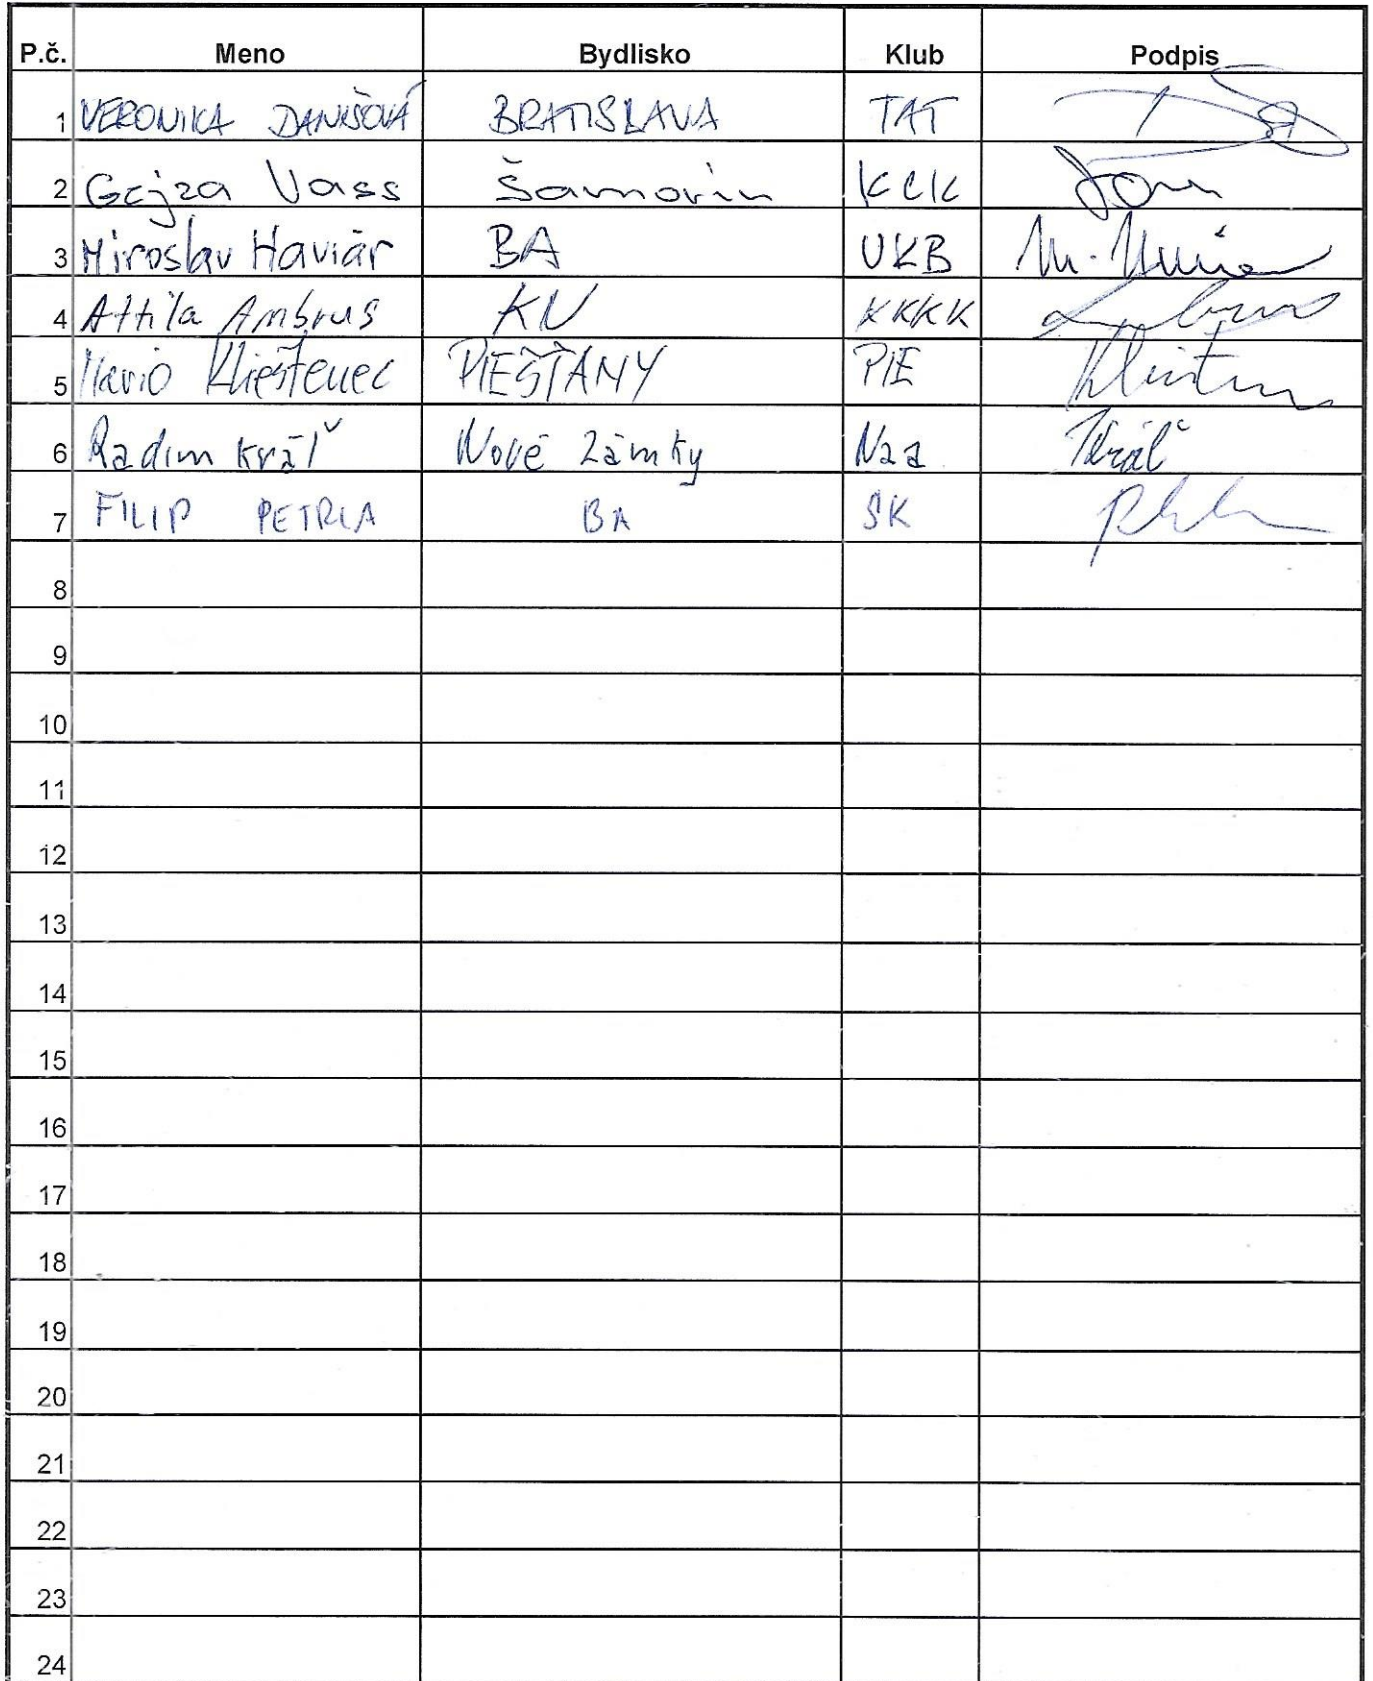 P.č. Meno Bydlisko Klub Podpis
1 VERONIKA DANIŠOVÁ BRATISLAVA TAT
2 Gejza Vass Šamorín KCK
3 Miroslav Haviár BA UKB
4 Attila Ambrus KN KKKK
5 Mário Klieštenec PIEŠŤANY PIE
6 Radim Kráľ Nové Zámky Nza Kráľ
7 FILIP PETRLA BA SK
8
9
10
11
12
13
14
15
16
17
18
19
20
21
22
23
24